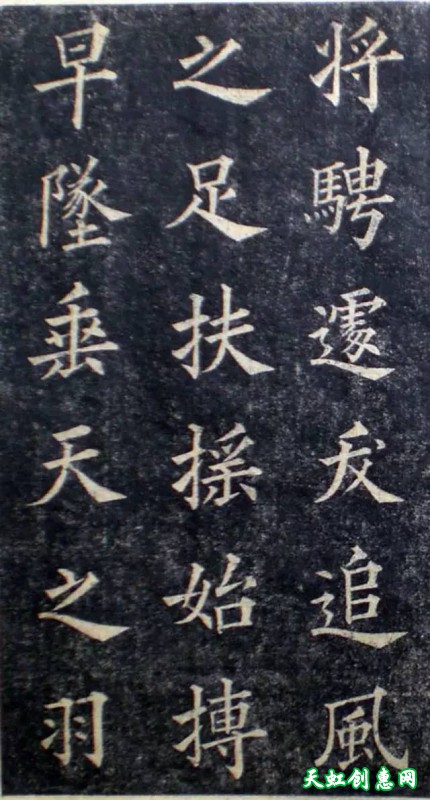 将騁遽追風
之足扶摇始摶
早墜垂天之羽
天虹创惠网